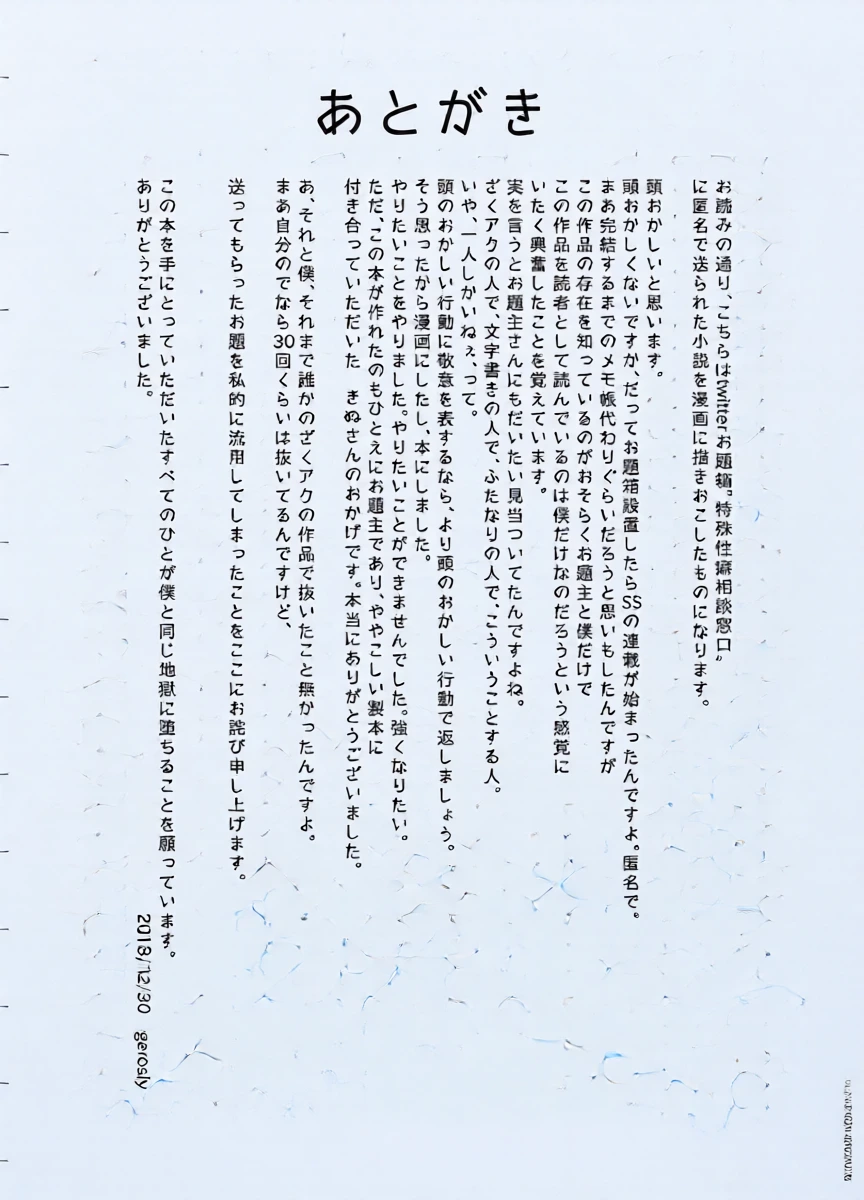 あとがき
お読みの通り、こちらはtwitterお題箱〝特殊性癖相談窓口〟
に匿名で送られた小説を漫画に描きおこしたものになります。
頭おかしいと思います。
頭おかしくないですか、だってお題箱設置したらSSの連載が始まったんですよ。匿名で。
まあ完結するまでのメモ帳代わりぐらいだろうと思いもしたんですが
この作品の存在を知っているのがおそらくお題主と僕だけで
この作品を読者として読んでいるのは僕だけなのだろうという感覚に
いたく興奮したことを覚えています。
実を言うとお題主さんにもだいたい見当ついてたんですよね。
ざくアクの人で、文字書きの人で、ふたなりの人で、こういうことする人。
いや、一人しかいねぇ、って。
頭のおかしい行動に敬意を表するなら、より頭のおかしい行動で返しましょう。
そう思ったから漫画にしたし、本にしました。
やりたいことをやりました。やりたいことができませんでした。強くなりたい。
ただ、この本が作れたのもひとえにお題主であり、ややこしい製本に
付き合っていただいた　きぬさんのおかげです。本当にありがとうございました。
あ、それと僕、それまで誰かのざくアクの作品で抜いたこと無かったんですよ。
まあ自分のでなら30回くらいは抜いてるんですけど、
送ってもらったお題を私的に流用してしまったことをここにお詫び申し上げます。
この本を手にとっていただいたすべてのひとが僕と同じ地獄に堕ちることを願っています。
ありがとうございました。
2018/12/30　gerosly